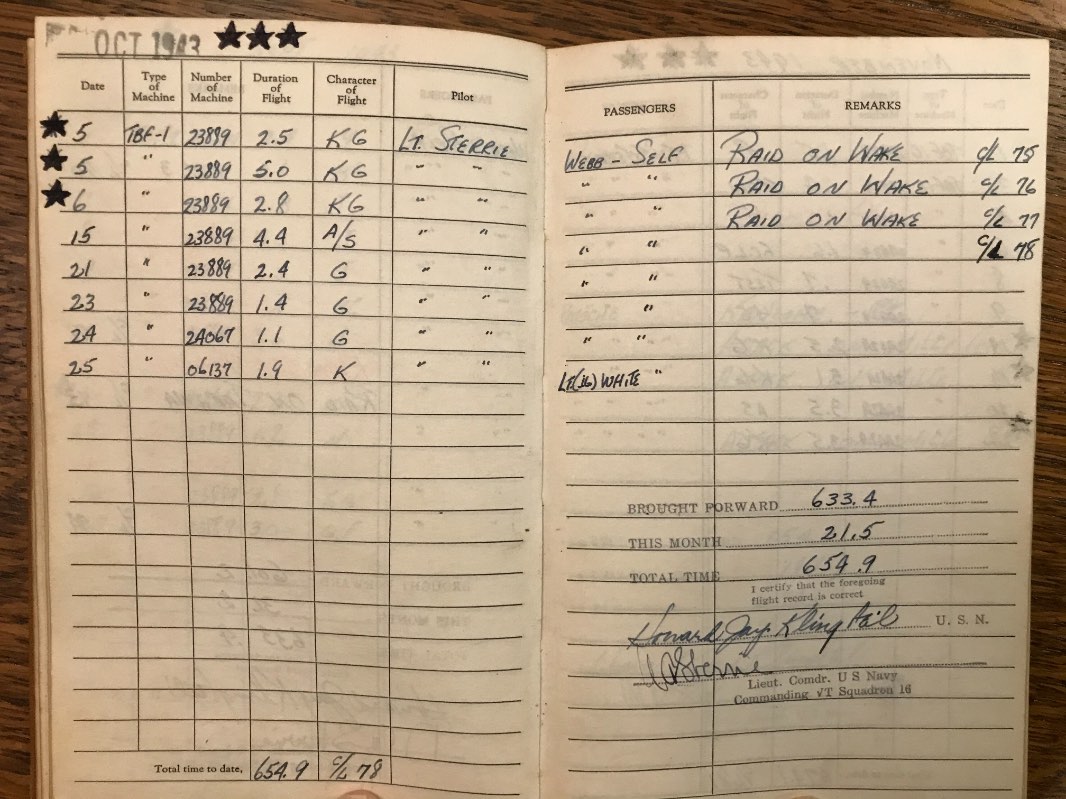 OCT 1943 ★★★
Date Type of Machine Number of Machine Duration of Flight Character of Flight Pilot
PASSENGERS REMARKS
★ 5 TBF-1 23889 2.5 KG LT. STERRIE WEBB - SELF RAID ON WAKE C/L 75
★ 5 " 23889 5.0 KG " " " " RAID ON WAKE C/L 76
★ 6 " 23889 2.8 KG " " " " RAID ON WAKE C/L 77
15 " 23889 4.4 A/S " " " " C/L 78
21 " 23889 2.4 G " " " "
23 " 23889 1.4 G " " "
24 " 24067 1.1 G " " " "
25 " 06137 1.9 K " " LT(jg) WHITE "
BROUGHT FORWARD 633.4
THIS MONTH 21.5
TOTAL TIME 654.9
I certify that the foregoing
flight record is correct
Howard Jay U. S. N.
Lieut. Comdr. U S Navy
Commanding VT Squadron 16
Total time to date, 654.9 C/L 78